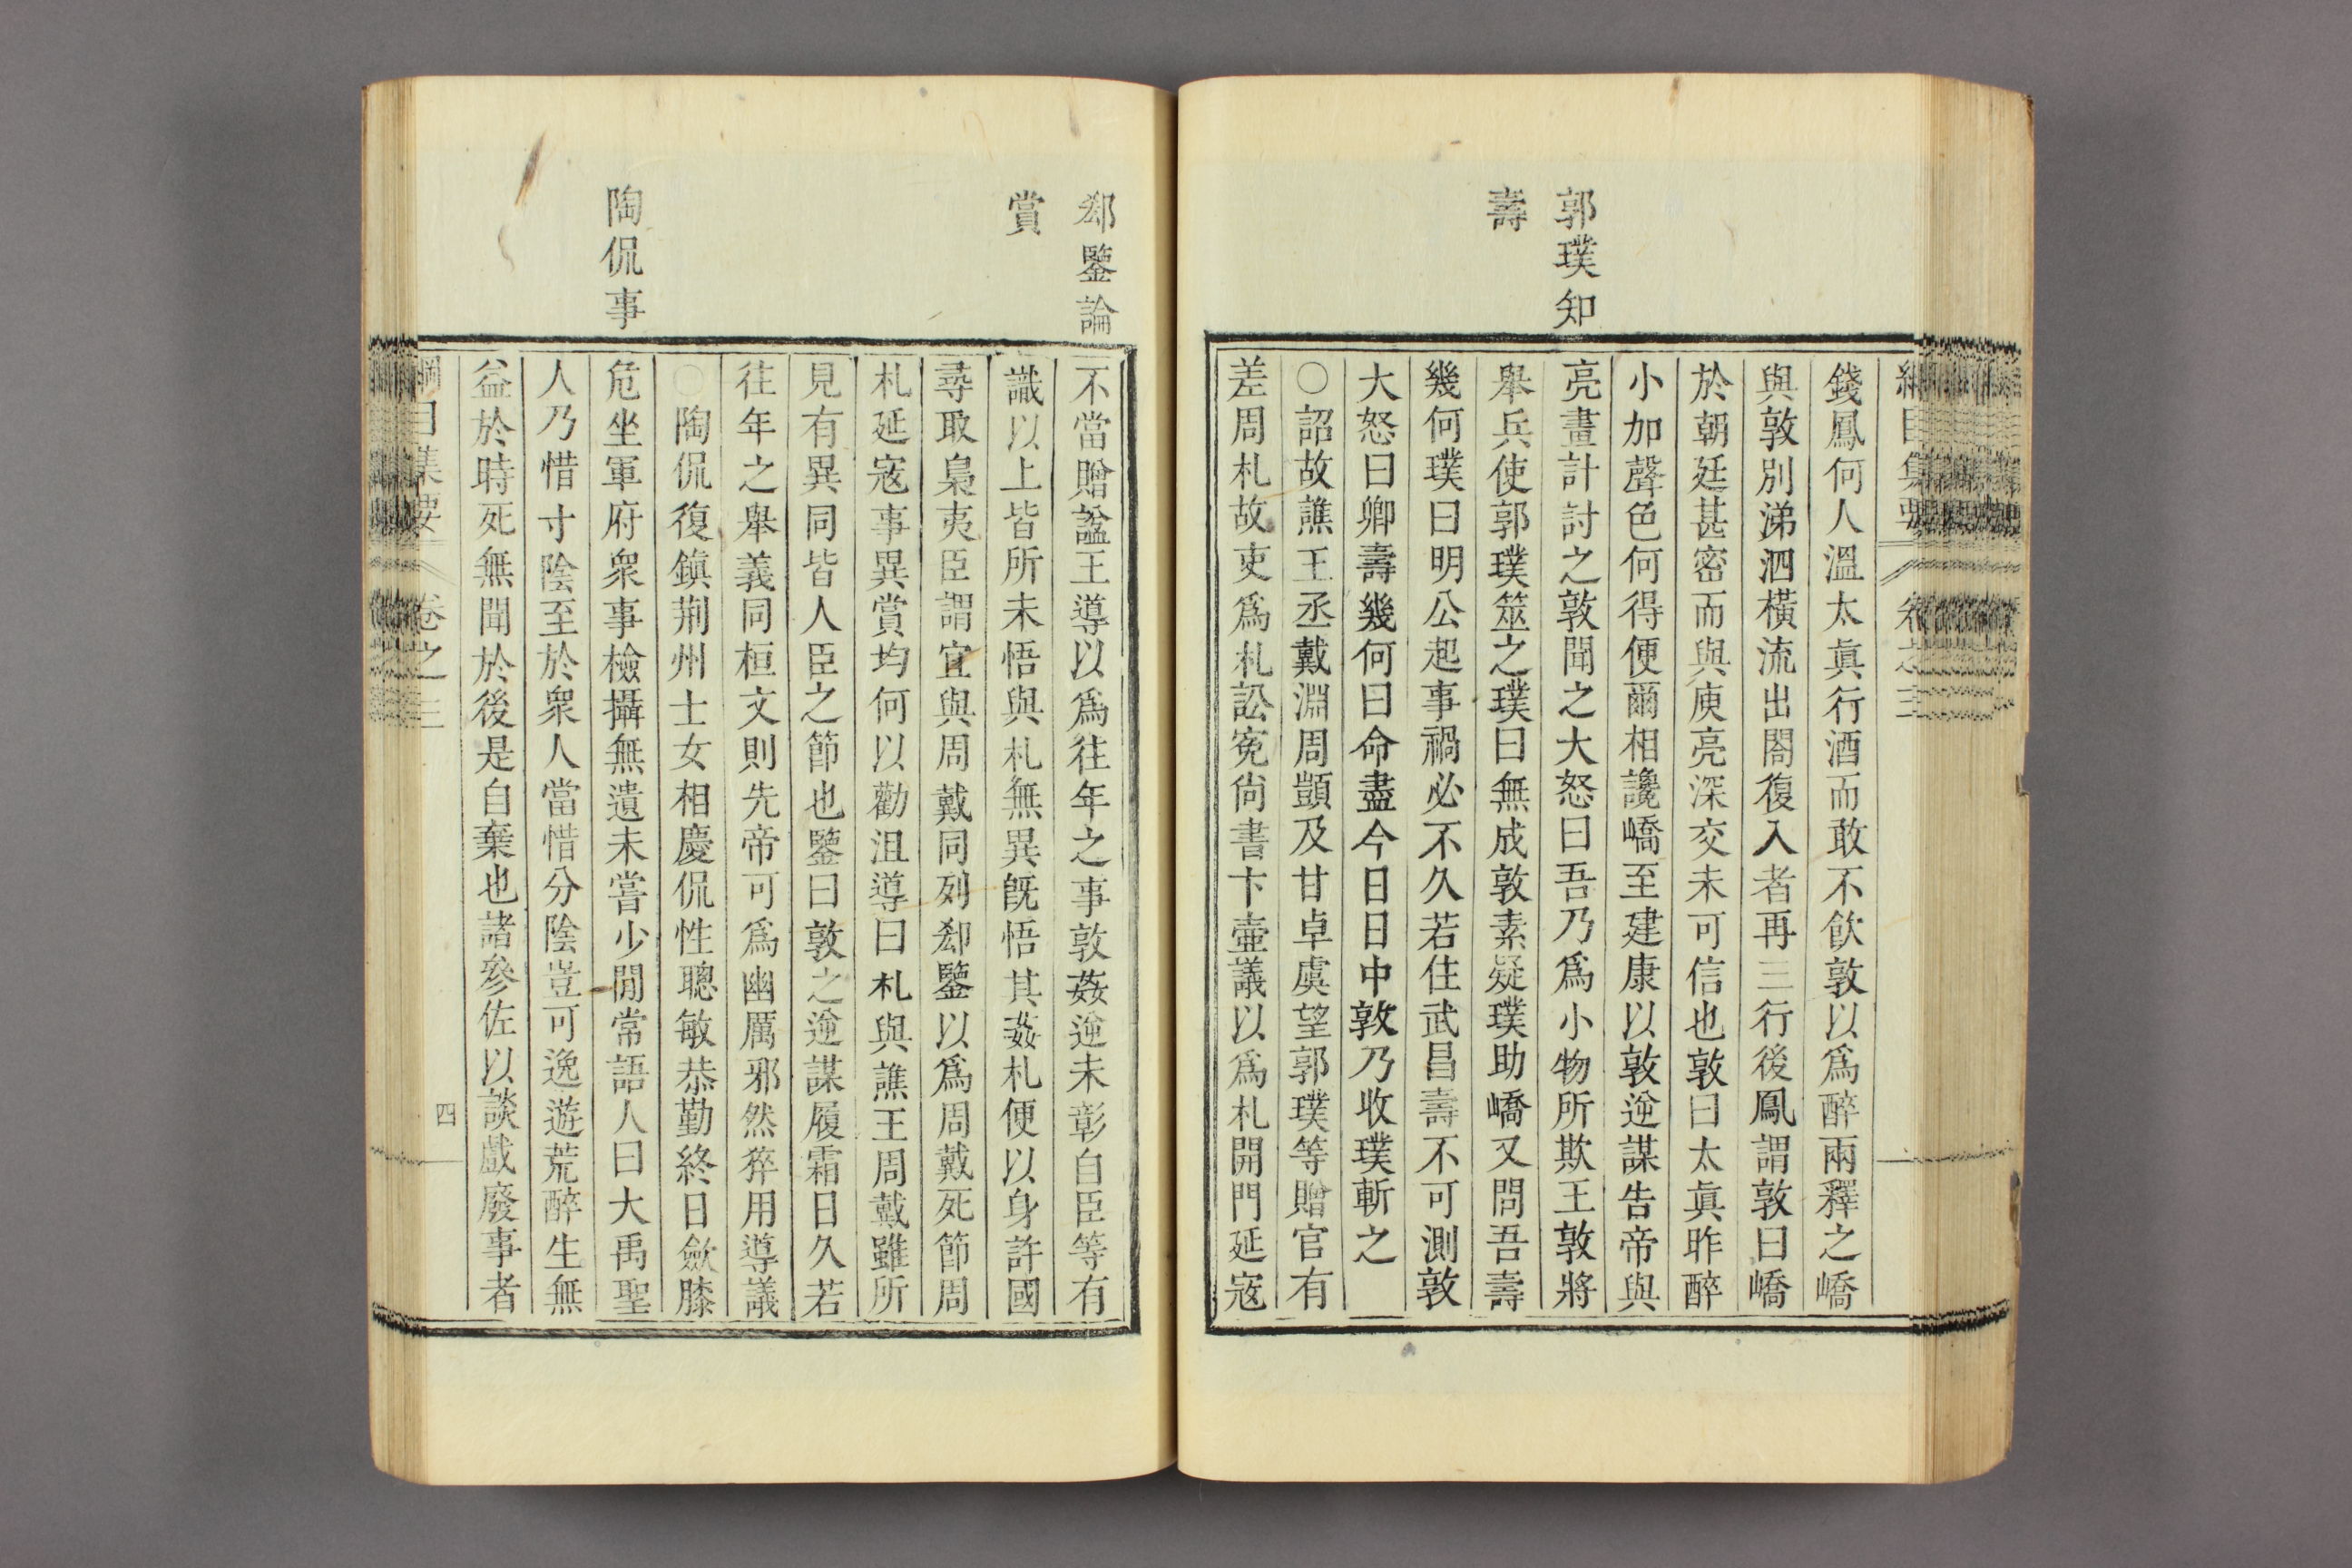 郭璞知
壽
錢鳳何人溫太眞行酒而敢不飲敦以爲醉兩釋之嶠
與敦別涕泗橫流出閤復入者再三行後鳳謂敦曰嶠
於朝廷甚密而與庾亮深交未可信也敦曰太眞昨醉
小加聲色何得便爾相讒嶠至建康以敦逆謀告帝與
亮畫計討之敦聞之大怒曰吾乃爲小物所欺王敦將
舉兵使郭璞筮之璞曰無成敦素疑璞助嶠又問吾壽
幾何璞曰明公起事禍必不久若住武昌壽不可測敦
大怒曰卿壽幾何曰命盡今日日中敦乃收璞斬之
○詔故譙王丞戴淵周顗及甘卓虞望郭璞等贈官有
差周札故吏爲札訟寃尙書卞壼議以爲札開門延寇
郄鑒論
賞
陶侃事
不當贈諡王導以爲往年之事敦姦逆未彰自臣等有
識以上皆所未悟與札無異旣悟其姦札便以身許國
尋取梟夷臣謂宜與周戴同列郄鑒以爲周戴死節周
札延寇事異賞均何以勸沮導曰札與譙王周戴雖所
見有異同皆人臣之節也鑒曰敦之逆謀履霜日久若
往年之舉義同桓文則先帝可爲幽厲邪然猝用導議
○陶侃復鎮荆州士女相慶侃性聰敏恭勤終日斂膝
危坐軍府衆事檢攝無遺未嘗少閒常語人曰大禹聖
人乃惜寸陰至於衆人當惜分陰豈可逸遊荒醉生無
益於時死無聞於後是自棄也諸參佐以談戲廢事者
綱目集要 卷之三 四